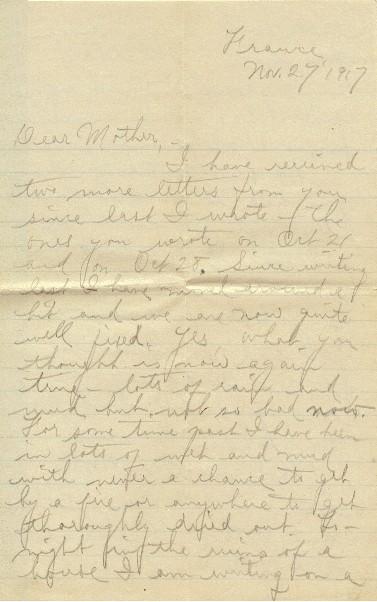 France
Nov. 27 1917
Dear Mother, -
I have received
two more letters from you
since last I wrote - the
ones you wrote on Oct 21
and on Oct 28. Since writing
last I have moved around a
bit and we are now quite
well fixed. Yes, what you
thought is now again
true - lots of rain and
mud but not so bad now.
For some time past I have been
in lots of wet and mud
with never a chance to get
by a fire or anywhere to get
thoroughly dried out. To-
night in the ruins of a
house I am writing on a